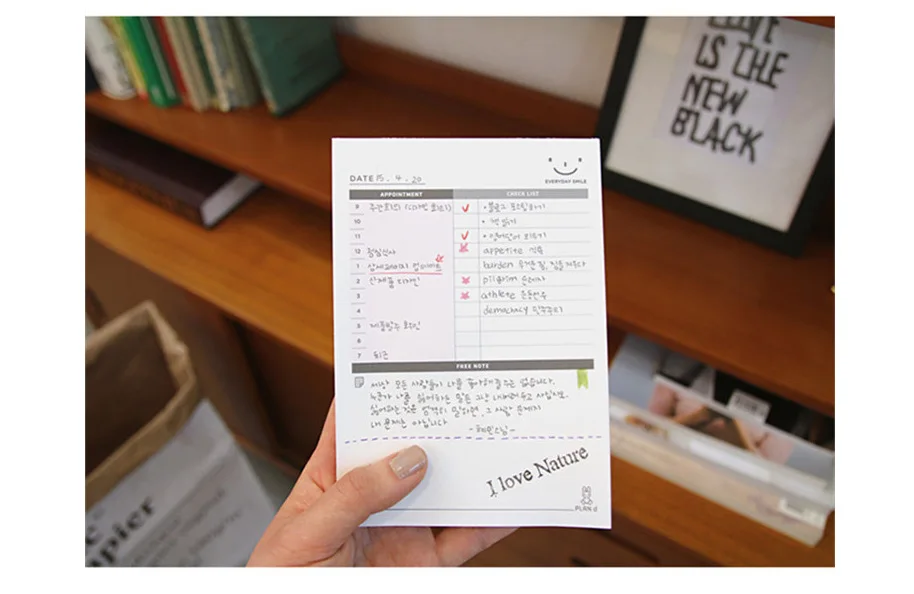 LOVE
IS THE
NEW
BLACK
DATE 15 . 4 . 20
EVERYDAY SMILE
APPOINTMENT
CHECK LIST
9 주간회의 (디자인 회의)
• 블로그 포스팅하기
10
• 책 읽기
11
• 영어단어 외우기
12 점심식사
appetite 식욕
1 상세페이지 업데이트
burden 무거운 짐, 짐을 지우다
2 신제품 디자인
pilgrim 순례자
3
athlete 운동선수
4
democracy 민주주의
5 제품발주 확인
6
7 퇴근
FREE NOTE
세상 모든 사람들이 나를 좋아해 줄 수는 없습니다.
누군가 나를 싫어하는 말은 그냥 내버려두고 사십시오.
싫어하는 것은 엄격히 말하면, 그 사람 문제지
내 문제는 아닙니다 -혜민스님-
I love Nature
PLAN d
apier